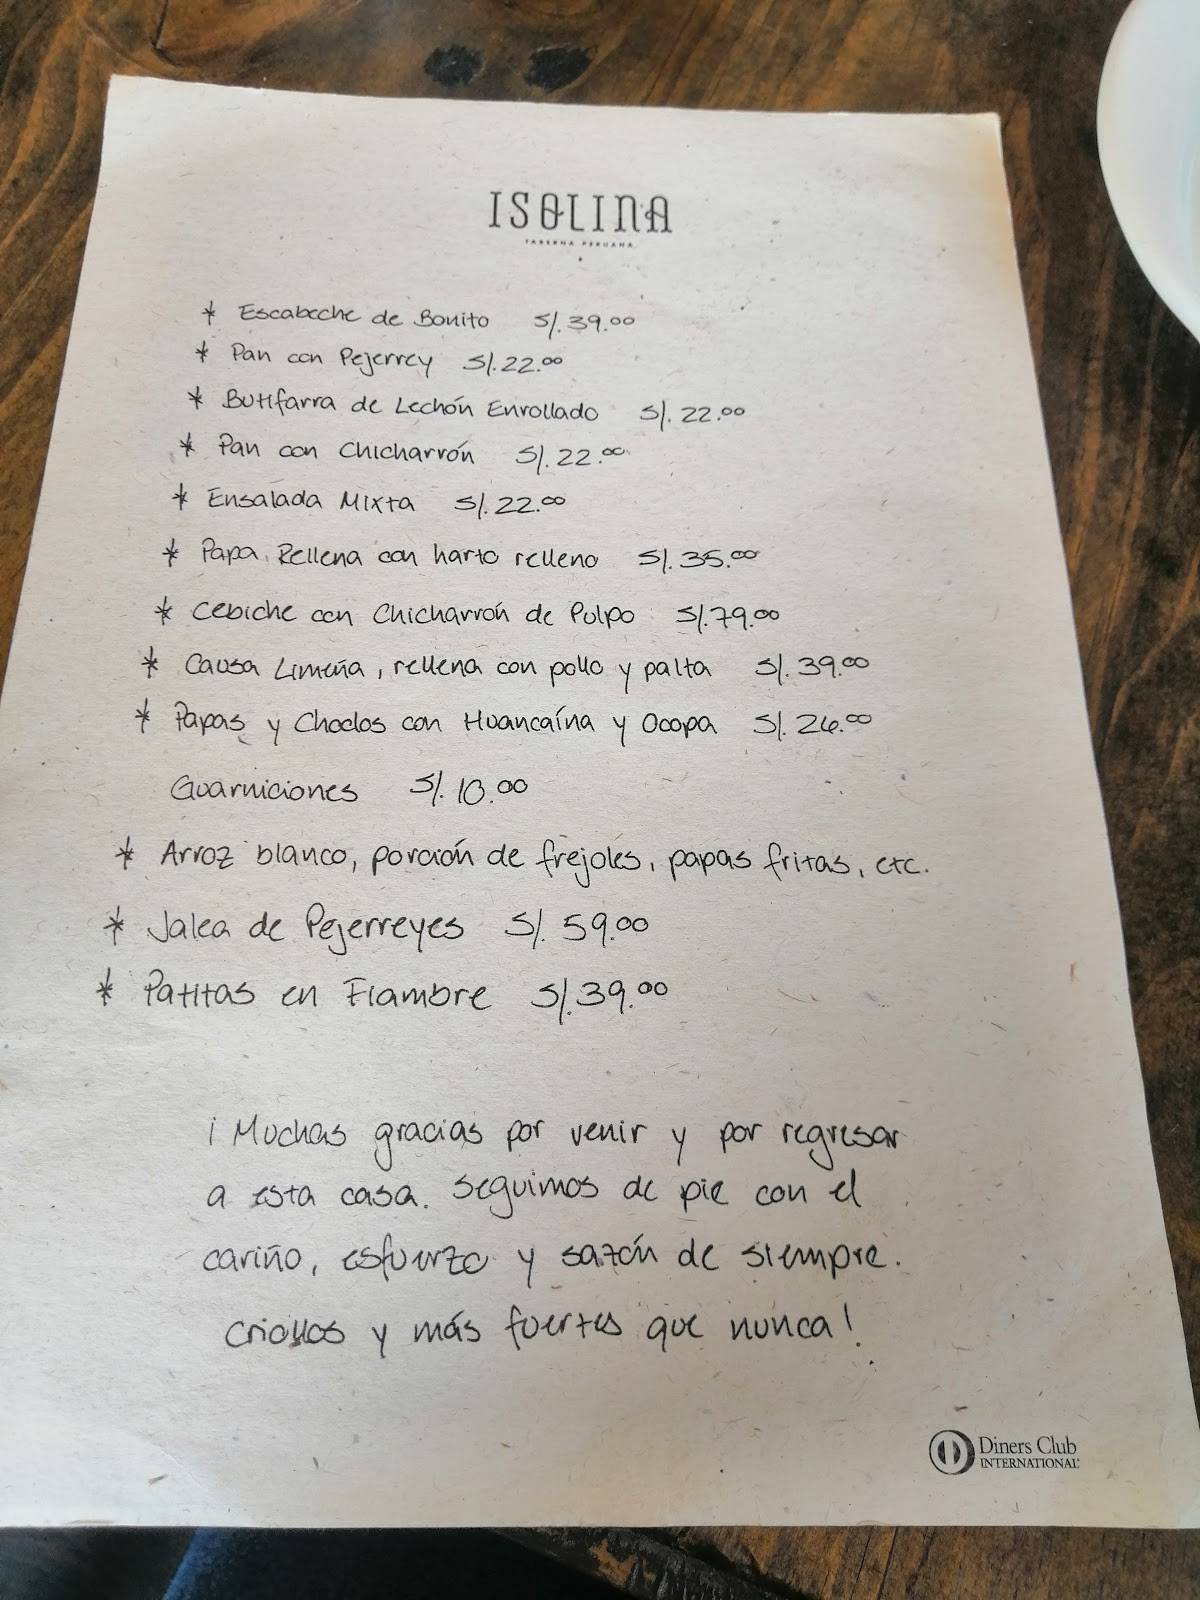 ISOLINA
TABERNA PERUANA
* Escabeche de Bonito S/. 39.00
* Pan con Pejerrey S/. 22.00
* Butifarra de Lechón Enrollado S/. 22.00
* Pan con Chicharrón S/. 22.00
* Ensalada Mixta S/. 22.00
* Papa Rellena con harto relleno S/. 35.00
* Cebiche con Chicharrón de Pulpo S/. 79.00
* Causa Limeña, rellena con pollo y palta S/. 39.00
* Papas y Choclos con Huancaína y Ocopa S/. 26.00
Guarniciones S/. 10.00
* Arroz blanco, porción de frejoles, papas fritas, etc.
* Jalea de Pejerreyes S/. 59.00
* Patitas en Fiambre S/. 39.00
¡Muchas gracias por venir y por regresar
a esta casa. Seguimos de pie con el
cariño, esfuerzo y sazón de siempre.
Criollos y más fuertes que nunca!
Diners Club
INTERNATIONAL